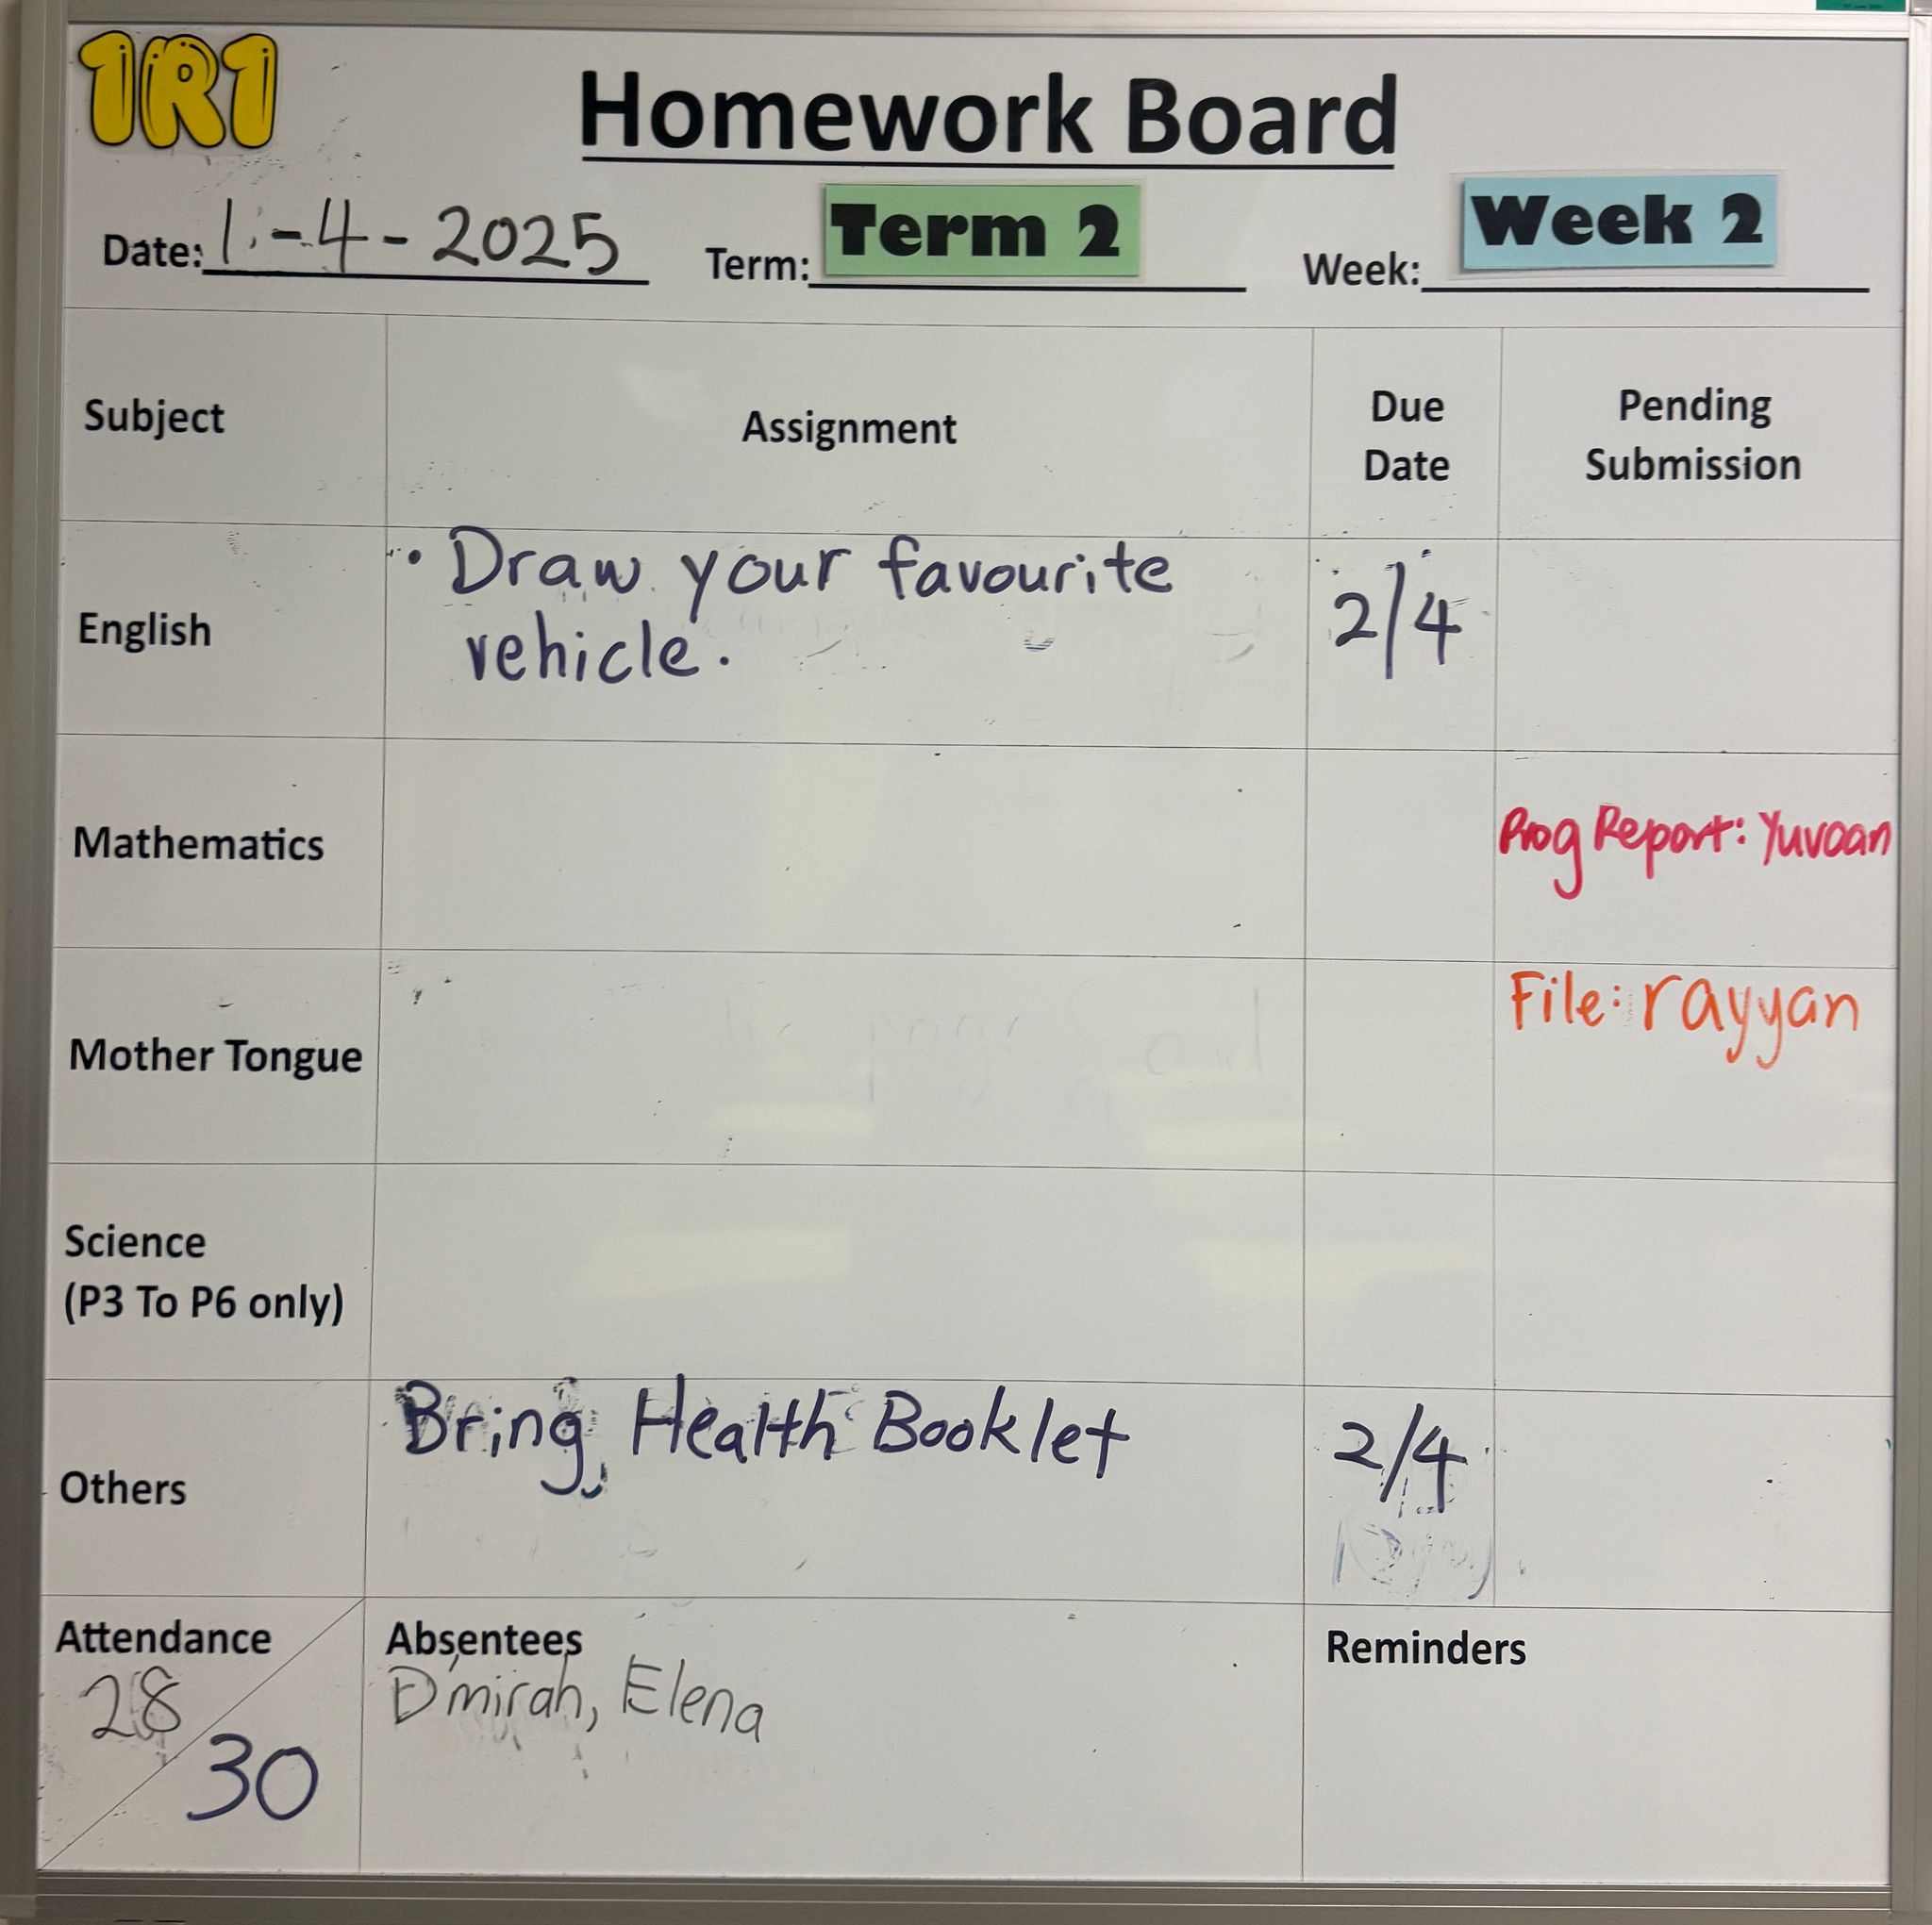 1R1
Homework Board
Date: 1-4-2025 Term: Term 2 Week: Week 2
Subject Assignment Due Date Pending Submission
English
• Draw your favourite
vehicle.
2/4
Mathematics
Prog Report: Yuvaan
Mother Tongue
File: rayyan
Science
(P3 To P6 only)
Others
Bring Health Booklet
2/4
Attendance
28
30
Absentees
D'mirah, Elena
Reminders